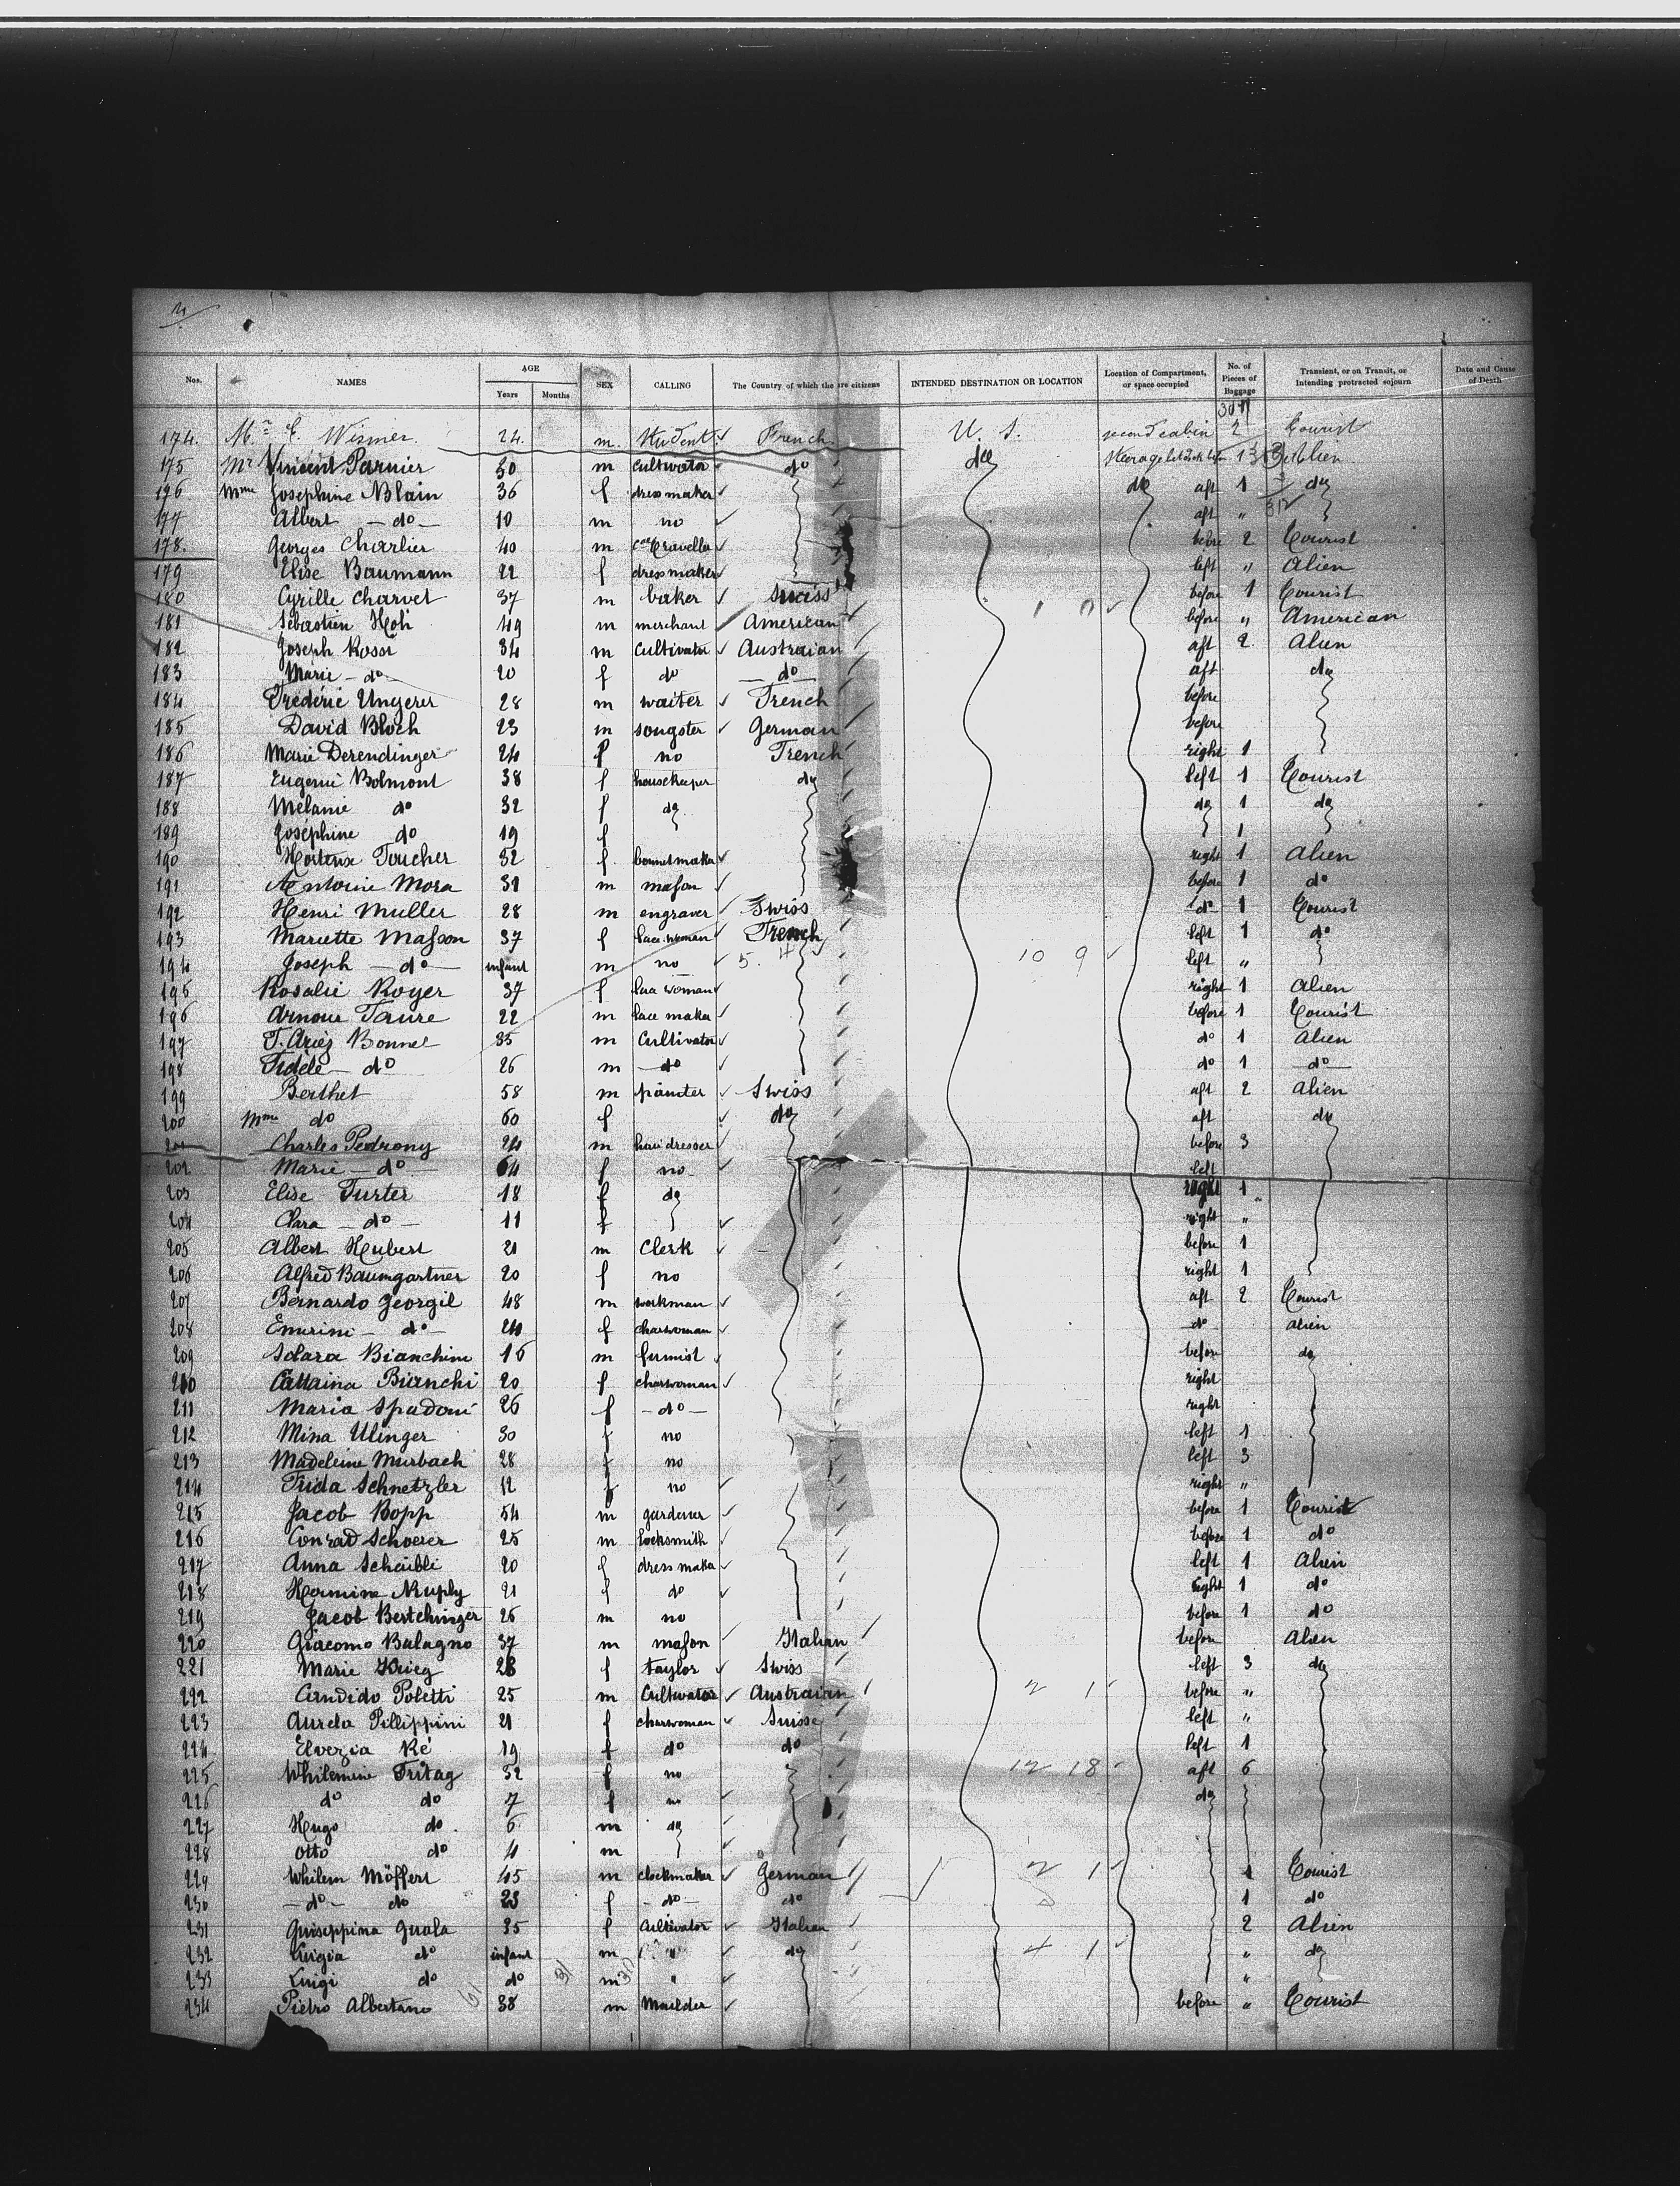 Nos. NAMES AGE Years Months SEX CALLING The Country of which the are citizens INTENDED DESTINATION OR LOCATION Location of Compartment, or space occupied No. of Pieces of Baggage Transient, or on Transit, or Intending protracted sojourn Date and Cause of Death
174. Mr E. Wismer 24 m. Student French U. S. second cabin 2 Tourist
175 Mr Vincent Parnier 30 m cultivator do do 1 Alien
176 Mme Josephine Blain 36 f dress maker do aft 1 do
177 Albert - do - 10 m no aft "
178. Georges Charlier 40 m Traveller before 2 Tourist
179 Elise Baumann 22 f dress maker left " Alien
180 Cyrille Charvet 37 m baker Suciss before 1 Tourist
181 Sébastien Hoh 49 m merchant American before " American
182 Joseph Rossi 34 m Cultivator Austraian aft 2 Alien
183 Marie - do - 20 f do - do - aft do
184 Frédéric Ungerer 28 m waiter French before
185 David Bloch 23 m songster German before
186 Marie Derendinger 24 f no French right 1
187 Eugenie Bolmont 38 f housekeeper do left 1 Tourist
188 Melanie do 32 f do do 1 do
189 Joséphine do 19 f 1
190 Hortense Faucher 32 f bonnet maker right 1 Alien
191 Antoine Mora 31 m mason before 1 do
192 Henri Muller 28 m engraver Swiss do 1 Tourist
193 Mariette Masson 37 f lace woman French left 1 do
194 Joseph - do - infant m no 5. 4 10 9 left "
195 Rosalie Royer 37 f lace woman right 1 Alien
196 Arnour Faure 22 m lace maker before 1 Tourist
197 F. Ariez Bonnet 35 m Cultivator do 1 Alien
198 Fidèle - do 26 m - do do 1 do
199 Berthet 58 m painter Swiss aft 2 Alien
200 Mme do 60 f do aft do
201 Charles Pedrony 24 m hairdresser before 3
202 Marie - do - 64 f no left
203 Elise Furter 18 f do right 1
204 Clara - do - 11 f right "
205 Albert Hubert 21 m Clerk before 1
206 Alfred Baumgartner 20 f no right 1
207 Bernardo Georgil 48 m workman aft 2 Tourist
208 Emerini - do - 24 f charwoman do alien
209 Solara Bianchini 16 m fumist before do
210 Cattaina Bianchi 20 f charwoman right
211 Maria Spadoni 26 f - do - right
212 Mina Ulinger 30 f no left 1
213 Madeleine Murbach 28 f no left 3
214 Frida Schnetzler 12 f no right "
215 Jacob Bopp 54 m gardener before 1 Tourist
216 Conrad Schoerer 25 m locksmith before 1 do
217 Anna Schäubli 20 f dress maker left 1 Alien
218 Hermine Nuply 21 f do right 1 do
219 Jacob Bertchinger 26 m no before 1 do
220 Giacomo Balagno 37 m mason Italian before Alien
221 Marie Krieg 28 f taylor Swiss left 3 do
222 Candido Poletti 25 m Cultivator Austraian 2 1 before "
223 Aurela Pillippini 21 f charwoman Suisse left "
224 Elvezia Ré 19 f do do left 1
225 Whilemine Fritag 32 f no 12 18 aft 6
226 do do 7 f no do
227 Hugo do 6 m do
228 Otto do 4 m
229 Whilem Möffert 45 m clockmaker German 2 1 1 Tourist
230 - do - do 23 f - do - do 1 do
231 Guiseppina Guala 35 f Cultivator Italian 2 Alien
232 Luigia do infant m " do 4 1 " do
233 Luigi do do m " "
234 Pietro Albertano 38 m Maulder before " Tourist